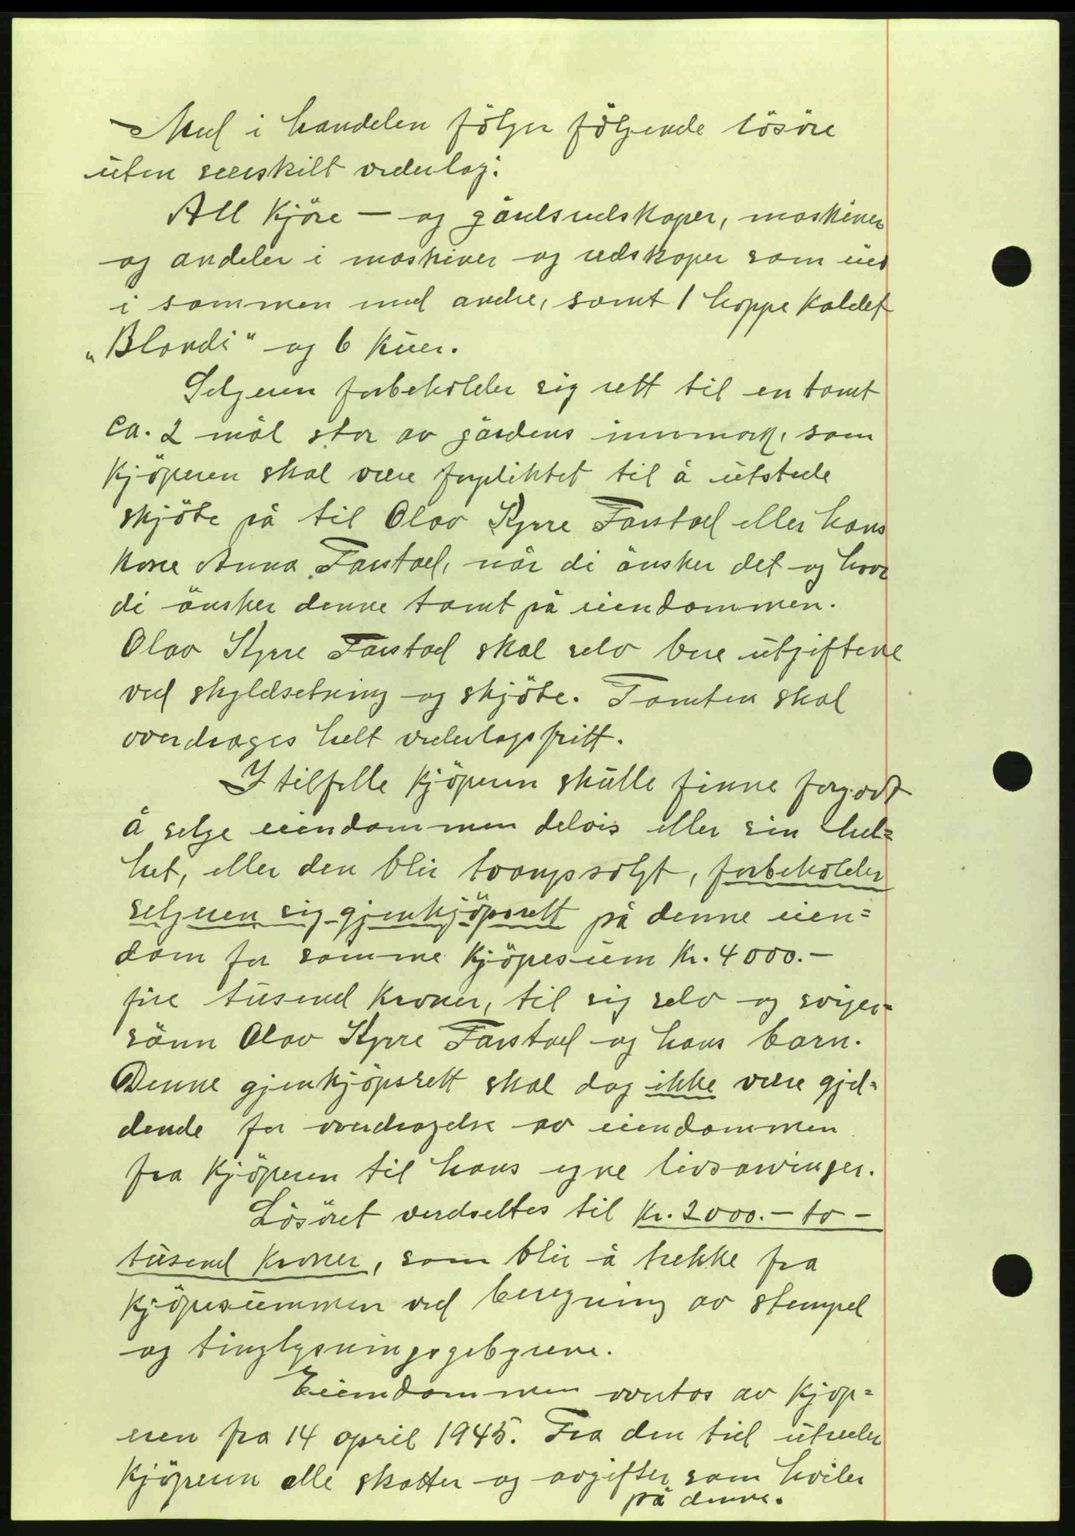 Med i handelen följer følgende lösöre
uten særskilt vederlag:
All kjöre – og gårdsredskaper, maskiner
og andeler i maskiner og redskaper som eies
i sammen med andre, samt 1 hoppe kaldet
„Blandi" og 6 kuer.
Selgeren forbeholder sig rett til en tomt
ca. 2 mål stor av gårdens innmark, som
kjöperen skal være forpliktet til å utstede
skjöte på til Olav Kyrre Farstad eller hans
kone Anna Farstad, når di önsker det og hvor
di önsker denne tomt på eiendommen.
Olav Kyrre Farstad skal selv bere utgiftene
ved skyldsetning og skjöte. Tomten skal
overdrages helt vederlagsfritt.
I tilfelle kjöperen skulle finne forgodt
å selge eiendommen delvis eller sin hel=
het, eller den blir tvangssolgt, forbeholder
selgeren sig gjenkjöpsrett på denne eien=
dom for samme kjöpesum kr. 4000.–
fire tusend kroner, til sig selv og sviger=
sönn Olav Kyrre Farstad og hans barn.
Denne gjenkjöpsrett skal dog ikke være gjel=
dende for overdragelse av eiendommen
fra kjöperen til hans egne livsarvinger.
Lösöret verdsettes til kr. 2000.– to –
tusend kroner, som blir å trekke fra
kjöpesummen ved beregning av stempel
og tinglysningsgebyrene.
Eiendommen overtas av kjöp=
eren fra 14 april 1945. Fra den tid utreder
kjöperen alle skatter og avgifter som hviler
på denne.